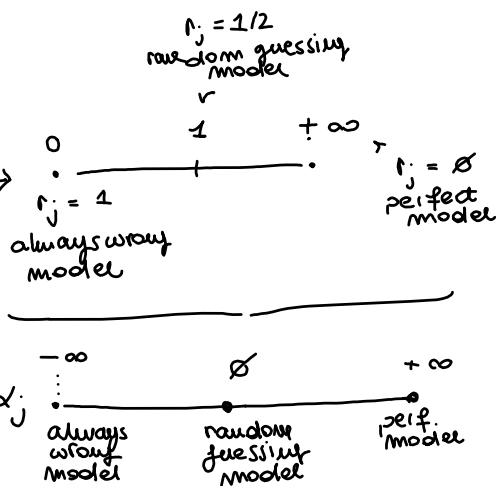 r_j = 1/2
random guessing
model
r
0
1
+ ∞
r_j = 1
always wrong
model
r_j = ∅
perfect
model
- ∞
∅
+ ∞
α_j
always
wrong
model
random
guessing
model
perf.
model